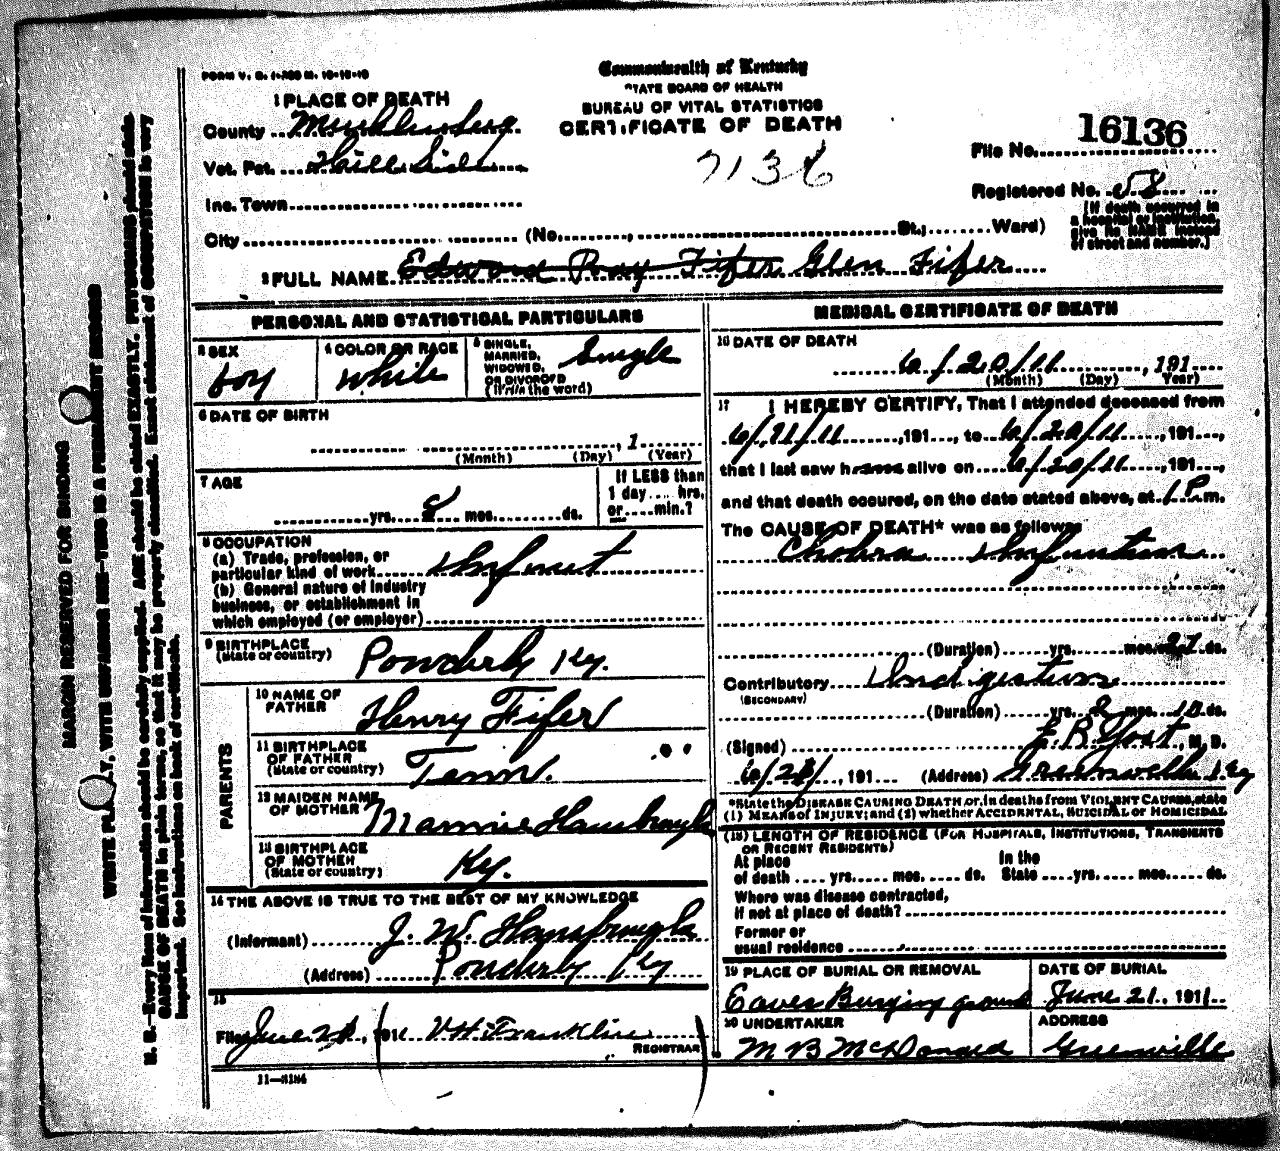 FORM V. S. 1-300 M. 10-10-10
Commonwealth of Kentucky
STATE BOARD OF HEALTH
BUREAU OF VITAL STATISTICS
CERTIFICATE OF DEATH
7136
File No. 16136
Registered No. 58
(If death occurred in
a hospital or institution,
give its NAME instead
of street and number.)
1 PLACE OF DEATH
County Muhlenberg
Vot. Pct.
Inc. Town
City (No. , St.; Ward)
2 FULL NAME Edword Ray Fifer Glen Fifer
PERSONAL AND STATISTICAL PARTICULARS
3 SEX boy
4 COLOR OR RACE White
5 SINGLE, MARRIED, WIDOWED, OR DIVORCED (Write the word) Single
6 DATE OF BIRTH
, 1
(Month) (Day) (Year)
7 AGE
yrs. 8 mos. ds.
If LESS than
1 day hrs,
or min.?
8 OCCUPATION
(a) Trade, profession, or
particular kind of work Infant
(b) General nature of industry
business, or establishment in
which employed (or employer)
9 BIRTHPLACE
(State or country) Powderly Ky.
PARENTS
10 NAME OF
FATHER Henry Fifer
11 BIRTHPLACE
OF FATHER
(State or country) Tenn.
12 MAIDEN NAME
OF MOTHER Mamie Hansbrough
13 BIRTHPLACE
OF MOTHER
(State or country) Ky.
14 THE ABOVE IS TRUE TO THE BEST OF MY KNOWLEDGE
(Informant) J. W. Hansbrough
(Address) Powderly Ky
15
Filed June 21, 1911 V. H. Franklin
REGISTRAR
11-3184
MEDICAL CERTIFICATE OF DEATH
16 DATE OF DEATH
6/20/11, 191
(Month) (Day) Year)
17 I HEREBY CERTIFY, That I attended deceased from
6/11/11, 191, to 6/20/11, 191,
that I last saw h alive on 6/20/11, 191,
and that death occured, on the date stated above, at 1 P m.
The CAUSE OF DEATH* was as follows
Cholera Infantum
(Duration) yrs. mos. 27 ds.
Contributory Indigestion
(SECONDARY)
(Duration) yrs. 2 mos. 10 ds.
(Signed) E. B. Yost, M. D.
6/21/, 191 (Address) Greenville Ky
*State the DISEASE CAUSING DEATH or, in deaths from VIOLENT CAUSES, state
(1) MEANS of INJURY; and (2) whether ACCIDENTAL, SUICIDAL or HOMICIDAL
(18) LENGTH OF RESIDENCE (FOR HOSPITALS, INSTITUTIONS, TRANSIENTS
OR RECENT RESIDENTS)
At place In the
of death yrs. mos. ds. State yrs. mos. ds.
Where was disease contracted,
if not at place of death?
Former or
usual residence
19 PLACE OF BURIAL OR REMOVAL
Eaves Burying ground
DATE OF BURIAL
June 21, 1911
20 UNDERTAKER
M B McDonald
ADDRESS
Greenville
MARGIN RESERVED FOR BINDING
WRITE PLAINLY, WITH UNFADING INK—THIS IS A PERMANENT RECORD
N. B.—Every item of information should be carefully supplied. AGE should be stated EXACTLY. PHYSICIANS should state
CAUSE OF DEATH in plain terms, so that it may be properly classified. Exact statement of OCCUPATION is very
important. See instructions on back of certificate.